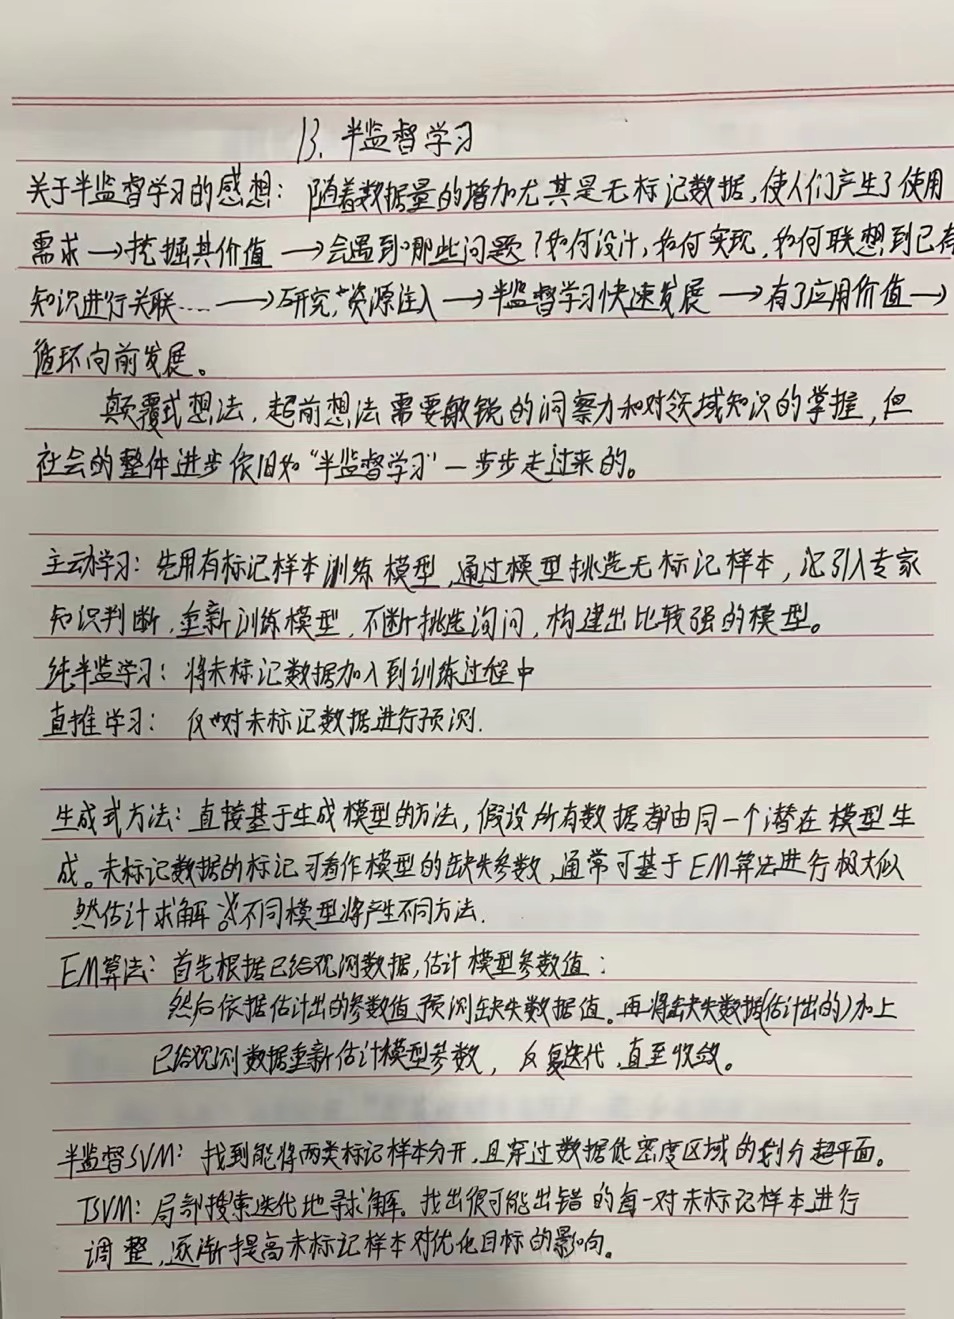 13. 半监督学习
关于半监督学习的感想：随着数据量的增加尤其是无标记数据，使人们产生了使用
需求→挖掘其价值→会遇到哪些问题？如何设计，如何实现，如何联想到已有
知识进行关联……→研究，资源注入→半监督学习快速发展→有了应用价值→
循环向前发展。
颠覆式想法，超前想法需要敏锐的洞察力和对领域知识的掌握，但
社会的整体进步依旧如“半监督学习”一步步走过来的。
主动学习：先用有标记样本训练模型，通过模型挑选无标记样本，引入专家
知识判断，重新训练模型，不断挑选询问，构建出比较强的模型。
纯半监学习：将未标记数据加入到训练过程中
直推学习：仅对未标记数据进行预测.
生成式方法：直接基于生成模型的方法，假设所有数据都由同一个潜在模型生
成。未标记数据的标记可看作模型的缺失参数，通常可基于EM算法进行极大似
然估计求解 不同模型将产生不同方法.
EM算法：首先根据已给观测数据，估计模型参数值；
然后依据估计出的参数值预测缺失数据值。再将缺失数据(估计出的)加上
已给观测数据重新估计模型参数，反复迭代，直至收敛。
半监督SVM：找到能将两类标记样本分开，且穿过数据低密度区域的划分超平面。
TSVM：局部搜索迭代地寻求解。找出很可能出错的每一对未标记样本进行
调整，逐渐提高未标记样本对优化目标的影响。